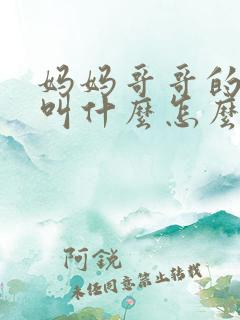 妈妈哥哥的
叫什麼怎麼
阿銳
未经同意禁止转载